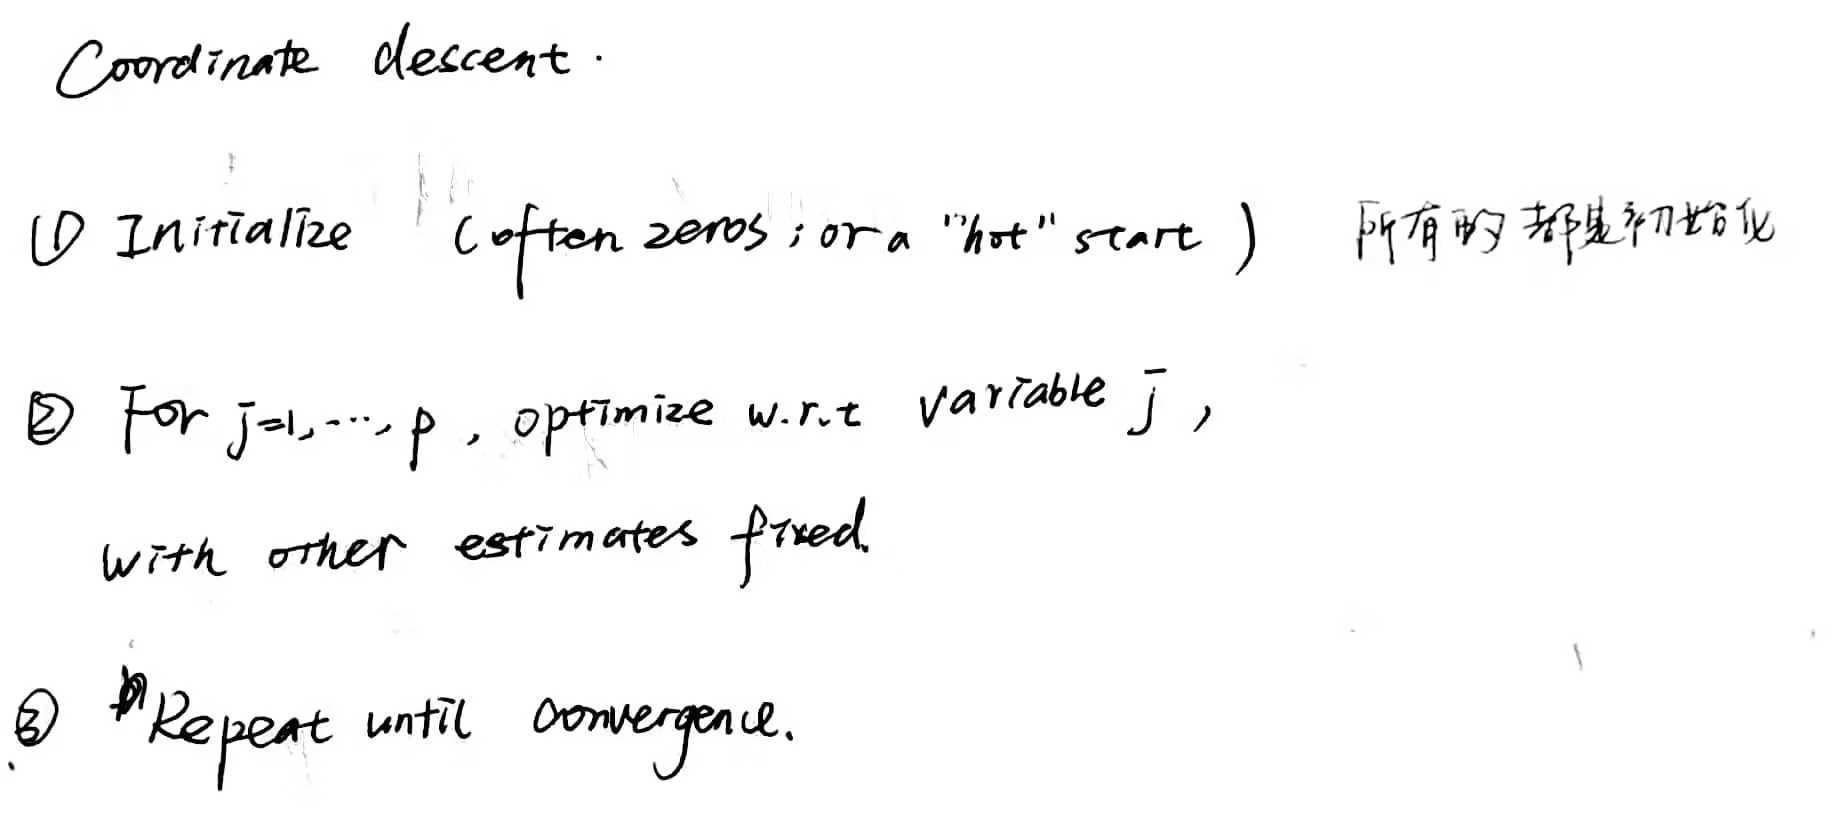 Coordinate descent.
① Initialize (often zeros; or a "hot" start) 所有的都是初始化
② For j=1,...,p, optimize w.r.t variable j,
with other estimates fixed.
③ Repeat until convergence.